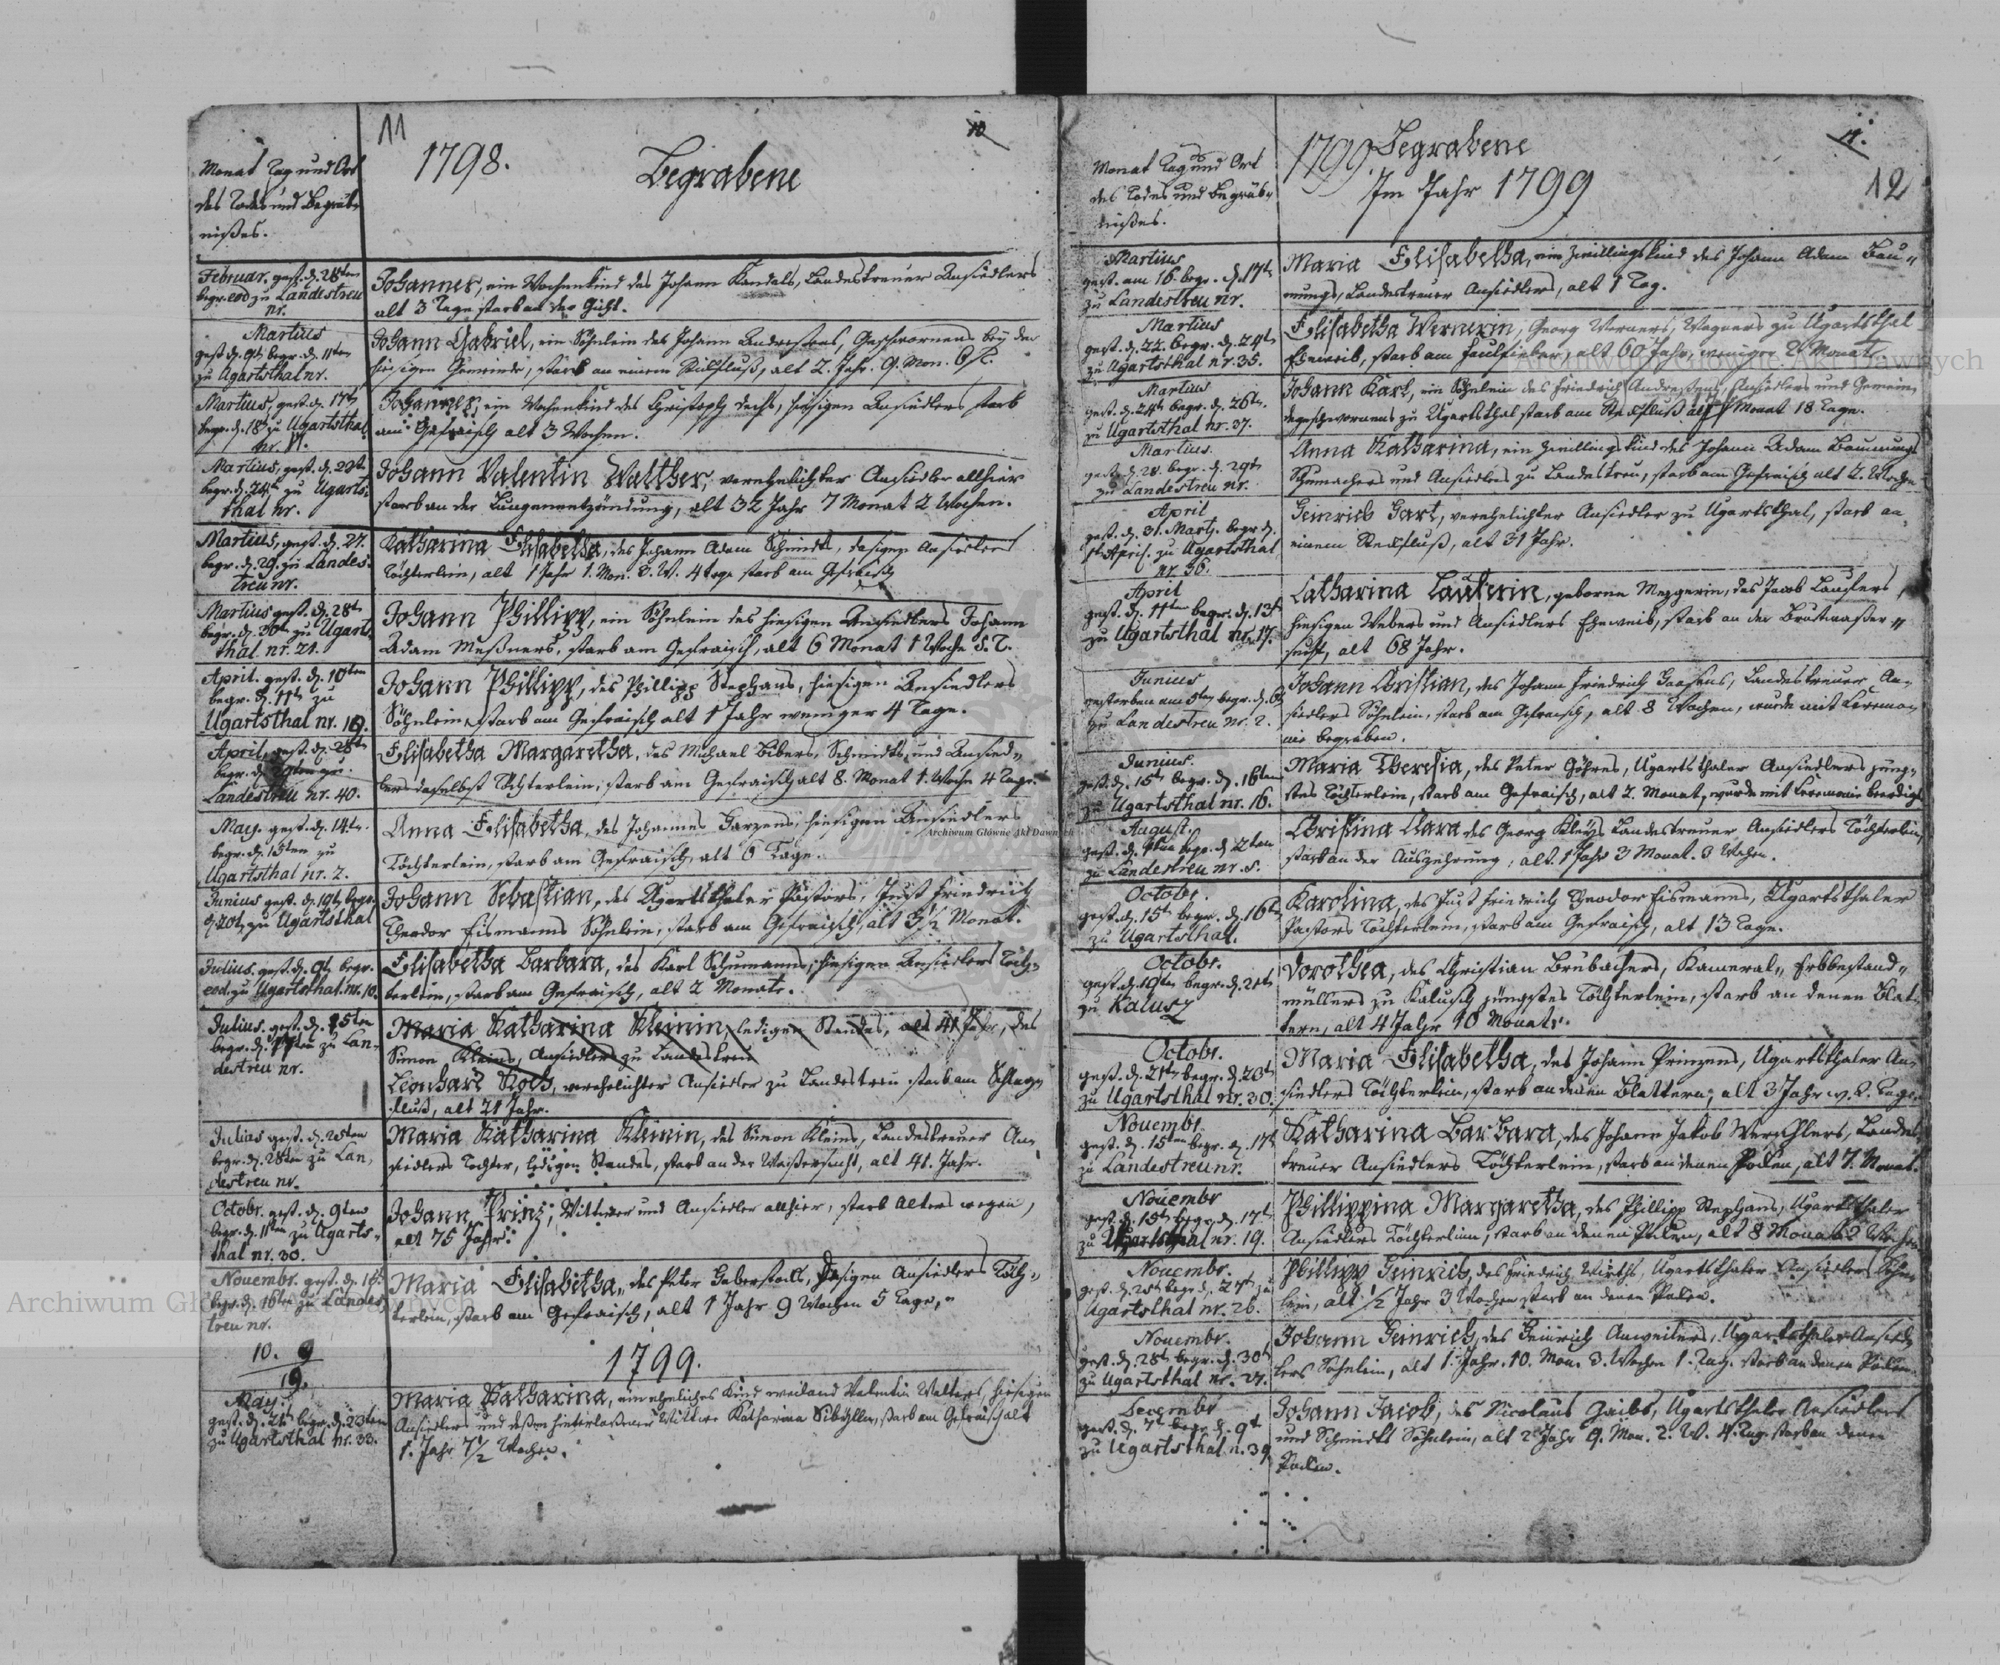 11
10
1798.
Begrabene
Monat Tag und Ort
des Todes und Begräb-
nißes.
Februar. gest. d. 28ten
begr. eod zu Landestreu
nr.
Johannes, ein Wochenkind des Johann Kandels, Landestreuer Ansiedlers
alt 3 Tage starb an der Gicht.
Martius
gest d. 9t begr. d. 11ten
zu Ugartsthal nr.
Johann Gabriel, ein Söhnlein des Johann Andreßens, Geschwornens bey der
hiesigen Gemeinde, starb an einem Stickfluß, alt 2. Jahr. 9. Mon.
Martius, gest. d. 17t
begr. d. 18t zu Ugartsthal
nr. 11.
Johannes, ein Wochenkind des Christoph hiesigen Ansiedlers starb
am Gefraisch alt 3 Wochen.
Martius, gest. d. 22t
begr. d. 24t zu Ugarts-
thal nr.
Johann Valentin Walther, verehelichter Ansiedler allhier
starb an der Lungenentzündung, alt 32 Jahr 7 Monat 2 Wochen.
Martius, gest. d. 27.
begr. d. 29. zu Landes-
treu nr.
Katharina Elisabetha, des Johann Adam Schmidts, dasigen Ansiedlers
Töchterlein, alt 1 Jahr 1. Mon. 3. W. 4 Tage starb am Gefraisch
Martius gest. d. 28t
begr. d. 30t zu Ugarts-
thal nr. 21.
Johann Phillipp, ein Söhnlein des hiesigen Ansiedlers Johann
Adam Meßners, starb am Gefraisch, alt 6 Monat 1 Woche 5. T.
April. gest. d. 10ten
begr. d. 11t zu
Ugartsthal nr. 19.
Johann Phillipp, des Phillipp Stephans, hiesigen Ansiedlers
Söhnlein, starb am Gefraisch alt 1 Jahr weniger 4 Tage.
April, gest. d. 28t
begr. d. zu
Landestreu nr. 40.
Elisabetha Margaretha, des Michael Bibers, Schmidts und Ansied-
lers daselbst Töchterlein, starb am Gefraisch alt 8. Monat 1. Woche 4 Tage.
May. gest. d. 14t.
begr. d. 15ten zu
Ugartsthal nr. 2.
Anna Elisabetha, des Johannes Harzens, hiesigen Ansiedlers
Töchterlein, starb am Gefraisch, alt 6 Tage.
Junius gest. d. 19t begr.
d. 20t zu Ugartsthal
Johann Sebastian, des Ugartsthaler Pastors, Just Friedrich
Theodor Eismanns Söhnlein, starb am Gefraisch, alt 3½ Monat.
Julius. gest. d. 9t begr.
eod. zu Ugartsthal. nr. 10.
Elisabetha Barbara, des Karl Schumanns, hiesigen Ansiedlers Töch-
terlein, starb am Gefraisch, alt 2 Monate.
Julius. gest. d. 15ten
begr. d. 17ten zu Lan-
destreu nr.
Maria Katharina Kleinin, ledigen Standes, alt 41 Jahr, des
Simon Kleins, Ansiedlers zu Landestreu
Leonhard Koch, verehelichter Ansiedler zu Landestreu starb am Schlag-
fluß, alt 21 Jahr.
Julius gest. d. 25ten
begr. d. 28ten zu Lan,
destreu nr.
Maria Katharina Kleinin, des Simon Kleins, Landestreuer An-
siedlers Tochter, ledigen Standes, starb an der Waßersucht, alt 41. Jahr.
Octobr. gest. d. 9ten
begr. d. 11ten zu Ugarts-
thal nr. 30.
Johann Prinz, Wittwer und Ansiedler allhier, starb Alters wegen,
alt 75 Jahr.
Novembr. gest. d. 14t
begr. d. 16ten zu Landes-
treu nr.
Maria Elisabetha, des Peter Haberstocks, dasigen Ansiedlers Töch-
terlein, starb am Gefraisch, alt 1 Jahr 9 Wochen 5 Tage,
10. 9
19.
1799.
May.
gest. d. 21t begr. d. 23ten
zu Ugartsthal nr. 33.
Maria Katharina, ein eheliches Kind weiland Valentin Walters, hiesigen
Ansiedlers und deßen hinterlaßener Wittwe Katharina Sibylla, starb am Gefraisch alt
1. Jahr 7½ Wochen.
11.
12
1799. Begrabene
Im Jahr 1799
Monat Tag und Ort
des Todes und Begräb-
nißes.
Martius
gest. am 16. begr. d. 17t
zu Landestreu nr.
Maria Elisabetha, ein Zwillingskind des Johann Adam Bau-
mungs, Landestreuer Ansiedlers, alt 1 Tag.
Martius
gest. d. 22. begr. d. 24t
zu Ugartsthal nr. 35.
Elisabetha Wernerin, Georg Werners, Wagners zu Ugartsthal
Eheweib, starb am Faulfieber, alt 60 Jahr, weniger 2 Monat.
Martius
gest. d. 24t begr. d. 26t.
zu Ugartsthal nr. 37.
Johann Karl, ein Söhnlein des Friedrich Andreßens, Ansiedlers und Gemein-
degeschwornens zu Ugartsthal starb am Steckfluß alt Monat 18 Tage.
Martius.
gest. d. 28. begr. d. 29t
zu Landestreu nr.
Anna Katharina, ein Zwillingskind des Johann Adam Baumungs
Schumachers und Ansiedlers zu Landestreu, starb am Gefraisch alt 2. Woche
April
gest. d. 31. Marty. begr. d.
1t April. zu Ugartsthal
nr. 36.
Heinrich Hart, verehelichter Ansiedler zu Ugartsthal, starb an
einem Steckfluß, alt 31 Jahr.
April
gest. d. 11ten begr. d. 13t
zu Ugartsthal nr. 17.
Catharina Lauterin, geborne Mezgerin, des Jacob Lauters,
hiesigen Webers und Ansiedlers Eheweib, starb an der Brustwaßer-
sucht, alt 68 Jahr.
Junius
gestorben am 5ten begr. d. 6t
zu Landestreu nr. 2.
Johann Christian, des Johann Friedrich Landestreuer An-
siedlers Söhnlein, starb am Gefraisch, alt 8 Wochen, wurde mit Ceremo-
nie begraben.
Junius.
gest. d. 15t begr. d. 16ten
zu Ugartsthal nr. 16.
Maria Theresia, des Peter Ugartsthaler Ansiedlers jüng-
stes Töchterlein, starb am Gefraisch, alt 2. Monat, wurde mit Ceremonie beerdigt
August.
gest. d. begr. d. 2ten
zu Landestreu nr. 5.
Christina Clara des Georg Kleys Landestreuer Ansiedlers Töchterlein,
starb an der Auszehrung, alt. 1 Jahr 3 Monat. 3 Wochen.
Octobr.
gest. d. 15t begr. d. 16t
zu Ugartsthal.
Karolina, des Just Friedrich Theodor Eismanns, Ugartsthaler
Pastors Töchterlein, starb am Gefraisch, alt 13 Tage.
Octobr.
gest. d. 19ten begr. d. 21t
zu Kalusz
Dorothea, des Christian Brubachers, Kameral- Erbbestand-
müllers zu Kalusch jüngstes Töchterlein, starb an denen Blat-
tern, alt 4 Jahr 10 Monate.
Octobr.
gest. d. 21t begr. d. 23t
zu Ugartsthal nr. 30.
Maria Elisabetha, des Johann Prinzens, Ugartsthaler An-
siedlers Töchterlein, starb an denen Blattern, alt 3 Jahr w. 2. Tage.
Novembr.
gest. d. 15ten begr. d. 17t
zu Landestreu nr.
Katharina Barbara, des Johann Jakob Landes-
treuer Ansiedlers Töchterlein, starb an denen Poken, alt 7. Monat.
Novembr
gest. d. 15t begr. d. 17t
zu Ugartsthal nr. 19.
Phillippina Margaretha, des Phillipp Stephans, Ugartsthaler
Ansiedlers Töchterlein, starb an denen Poken, alt 8 Monat 2 Wochen
Novembr.
gest. d. 25t begr d. 27t zu
Ugartsthal nr. 26.
Phillipp Heinrich, des Friedrich Wirths, Ugartsthaler Ansiedlers Söhn-
lein, alt ½ Jahr 3 Wochen starb an denen Poken.
Novembr.
gest. d. 28t begr. d. 30t
zu Ugartsthal nr. 27.
Johann Heinrich, des Heinrich Anweilers, Ugartsthaler Ansied-
lers Söhnlein, alt 1. Jahr. 10. Mon. 3. Wochen 1. Tag. starb an denen Poken.
Decembr
gest. d. 7t begr. d. 9t
zu Ugartsthal n. 39
Johann Jacob, des Nicolaus Ugartsthaler Ansiedlers
und Schmidts Söhnlein, alt 2 Jahr 9. Mon. 2. W. 4. Tag. starb an denen
Poken.
Archiwum Główne Akt Dawnych
Archiwum Główne Akt Dawnych
Archiwum Główne Akt Dawnych